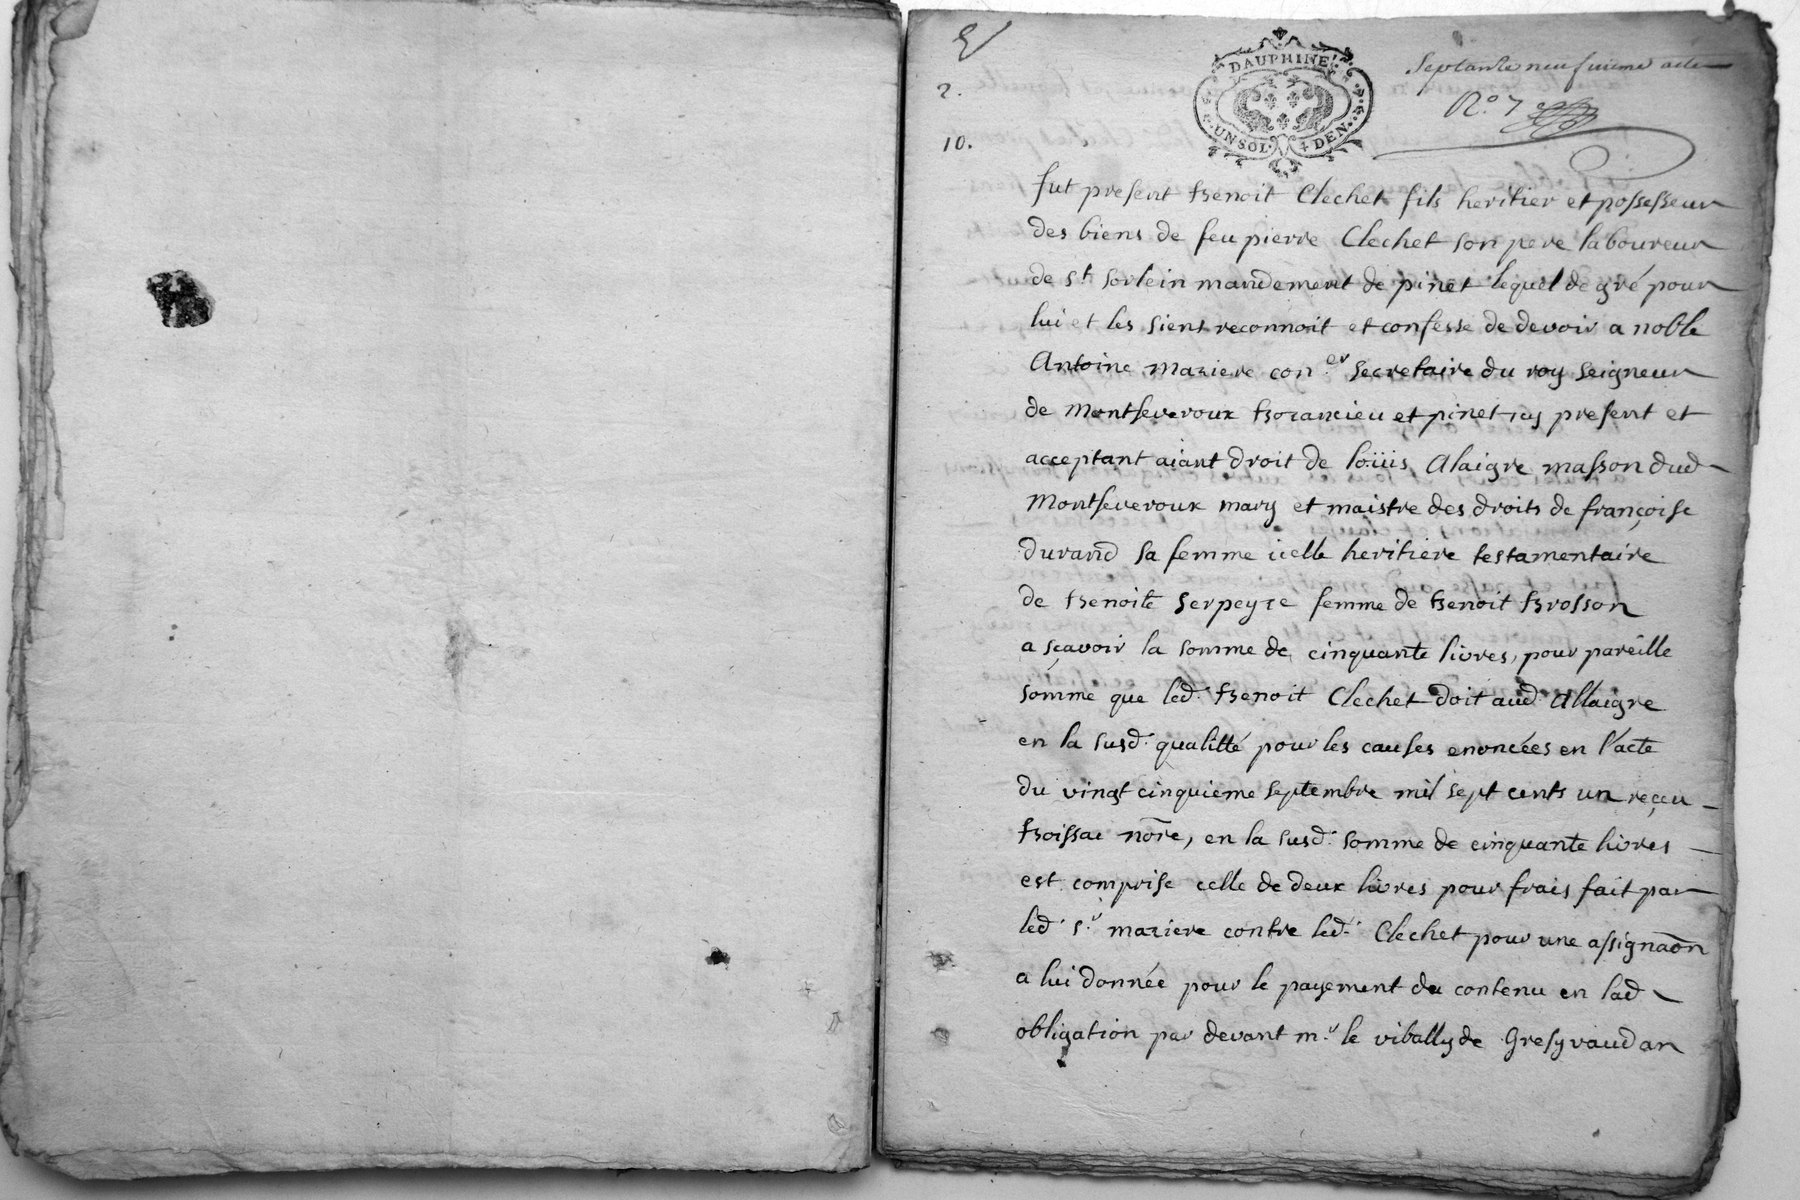 2.
10.
DAUPHINE
UN SOL 4 DEN.
Septante neufuieme acte
No. 7
fut present Benoit Clechet fils heritier et possesseur
des biens de feu pierre Clechet son pere laboureur
de st sorlein mandement de pinet lequel de gré pour
lui et les siens reconnoit et confesse de devoir a noble
Antoine maziere con.er secretaire du roy seigneur
de Montseveroux Bozancieu et pinet icy present et
acceptant aiant droit de loüis Alaigre masson dud
Montseveroux mary et maistre des droits de françoise
durand sa femme icelle heritiere testamentaire
de Benoite Serpeyze femme de Benoit Brosson
a sçavoir la somme de cinquante livres, pour pareille
somme que led. Benoit Clechet doit aud. Allaigre
en la susd. qualitté pour les causes enoncées en l'acte
du vingt cinquieme septembre mil sept cents un reçeu
Boissac nōre, en la susd. somme de cinquante livres
est comprise celle de deux livres pour frais fait par
led. s.r maziere contre led. Clechet pour une assignaōn
a lui donnée pour le payement du contenu en lad
obligation par devant m.r le vibally de Gresyvaudan